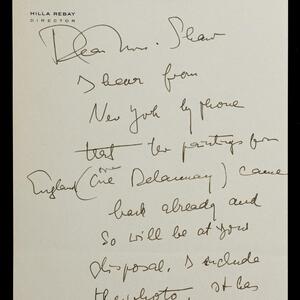 HILLA REBAY
DIRECTOR
Dear Mrs. Shaw
I hear from
New York by phone
that the paintings from
England (one Delaunay) came
back already and
so will be at your
disposal. I include
the photo, It has